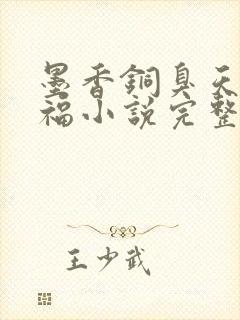 墨香銅臭天
福小說完整
王少武